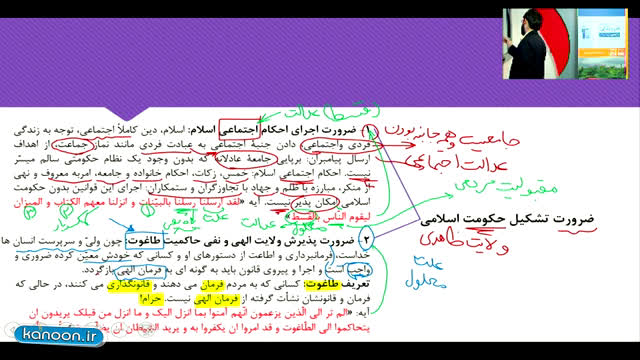 (قسط) عدالت
۱- ضرورت اجرای احکام اجتماعی اسلام: اسلام، دین کاملاً اجتماعی، توجه به زندگی
فردی واجتماعی دادن جنبهٔ اجتماعی به عبادت فردی مانند نماز جماعت، از اهداف
ارسال پیامبران: برپایی جامعهٔ عادلانه که بدون وجود یک نظام حکومتی سالم میسّر
نیست. احکام اجتماعی اسلام: خمس، زکات، احکام خانواده و جامعه، امربه معروف و نهی
از منکر، مبارزه با ظلم و جهاد با تجاوزگران و ستمکاران: اجرای این قوانین بدون حکومت
اسلامی امکان پذیر نیست. آیه: «لقد ارسلنا رسلنا بالبیّنات و انزلنا معهم الکتاب و المیزان
لیقوم النّاس بالقسط»
عدالت
جامعیت و همه جانبه بودن
عدالت اجتماعی
مقبولیت مردمی
ضرورت تشکیل حکومت اسلامی
ولایت ظاهری
علت
معلول
۲- ضرورت پذیرش ولایت الهی و نفی حاکمیت طاغوت: چون ولیّ و سرپرست انسان ها
خداست، فرمانبرداری و اطاعت از دستورهای او و کسانی که خودش معین کرده ضروری و
واجب است و اجرا و پیروی قانون باید به گونه ای به فرمان الهی بازگردد.
تعریف طاغوت: کسانی که به مردم فرمان می دهند و قانونگذاری می کنند، در حالی که
فرمان و قانونشان نشأت گرفته از فرمان الهی نیست. حرام!
آیه: «الم تر الی الّذین یزعمون انّهم آمنوا بما انزل الیک و ما انزل من قبلک یریدون ان
یتحاکموا الی الطّاغوت و قد امروا ان یکفروا به و یرید الشیطان ان
kanoon.ir